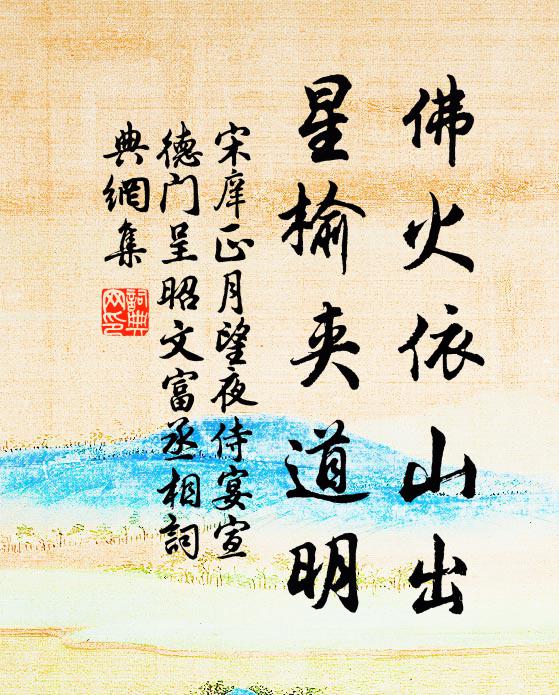 佛火依山出
星榆夹道明
宋庠正月望夜侍宴宣
德门呈昭文富丞相詞
典網集
詞典
网印